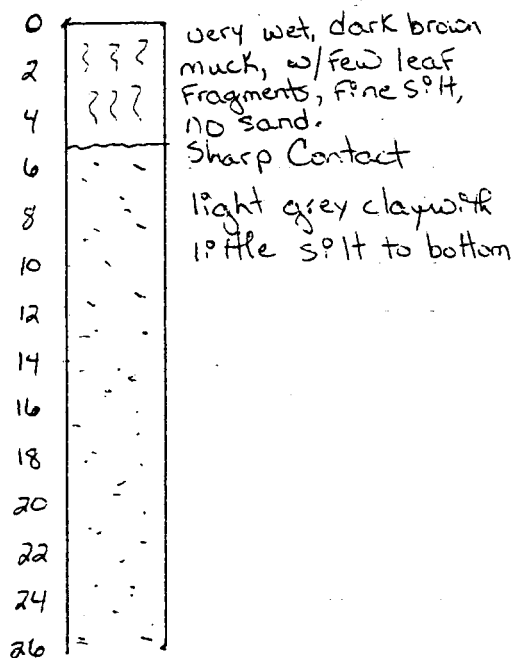 0
2
4
6
8
10
12
14
16
18
20
22
24
26
very wet, dark brown
muck, w/ few leaf
fragments, fine silt,
no sand.
Sharp Contact
light grey clay with
little silt to bottom